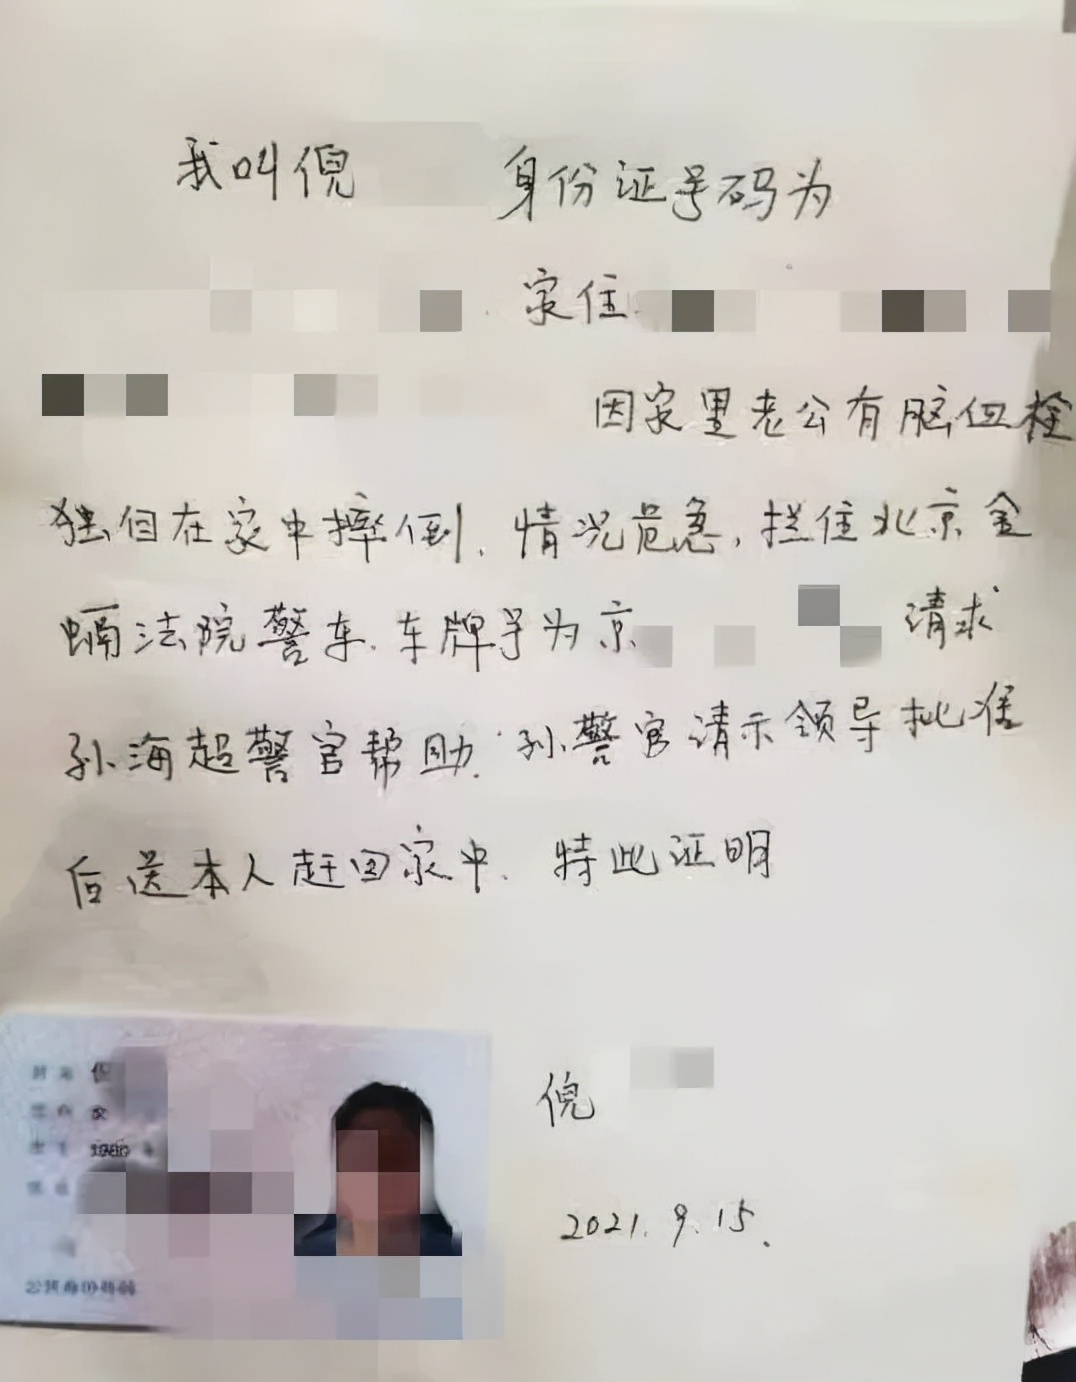 我叫倪
身份证号码为
家住
因家里老公有脑血栓
独自在家中摔倒、情况危急，拦住北京金
融法院警车、车牌号为京 请求
孙海超警官帮助、孙警官请示领导批准
后送本人赶回家中、特此证明
倪
2021.9.15.